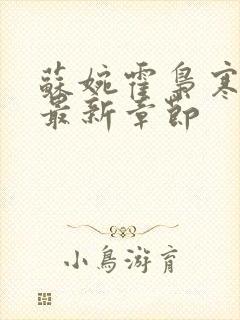 蘇婉霍梟寒
最新章節
小鳥游育